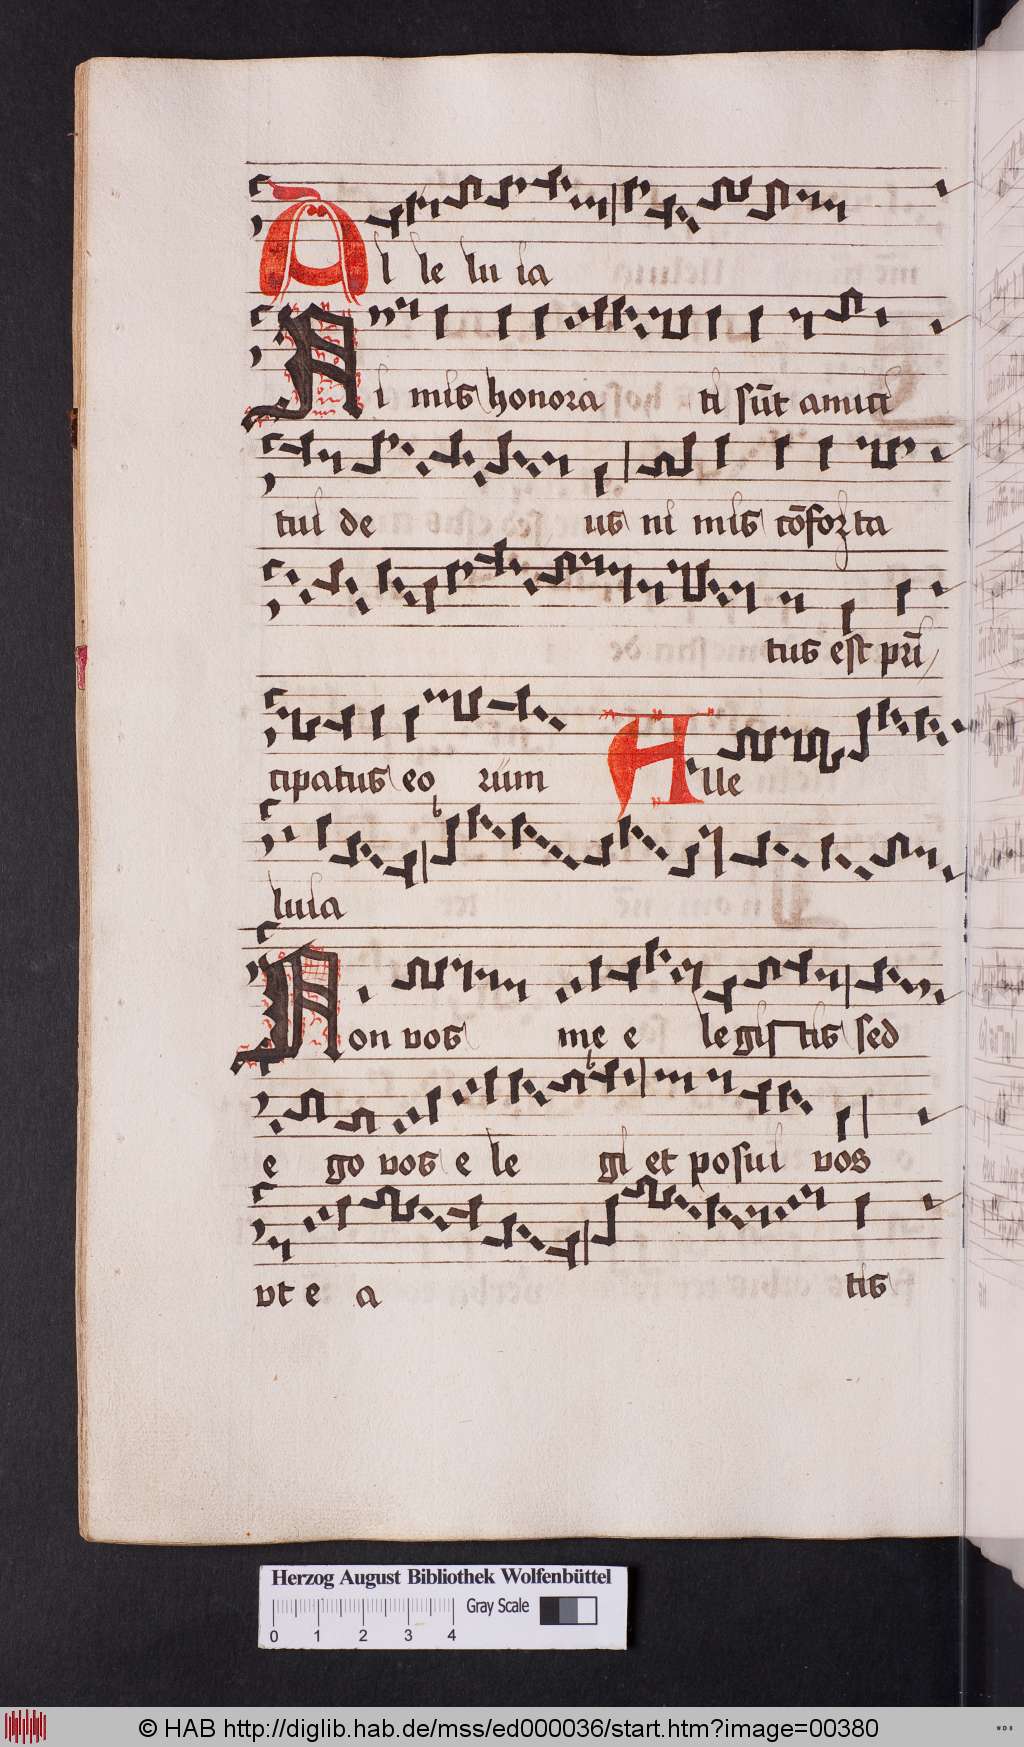 Al le lu ia
Ni mis honora ti sūt amici
tui de us ni mis cōforta
tus est pri
cipatus eo rum Alle
luia
Non vos me e legistis sed
e go vos e le gi et posui vos
vt e a tis
Herzog August Bibliothek Wolfenbüttel
Gray Scale
0 1 2 3 4
© HAB http://diglib.hab.de/mss/ed000036/start.htm?image=00380